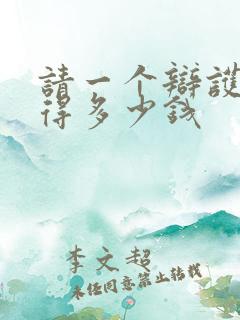 請一个辯護
得多少錢
李文超
未经同意禁止转载